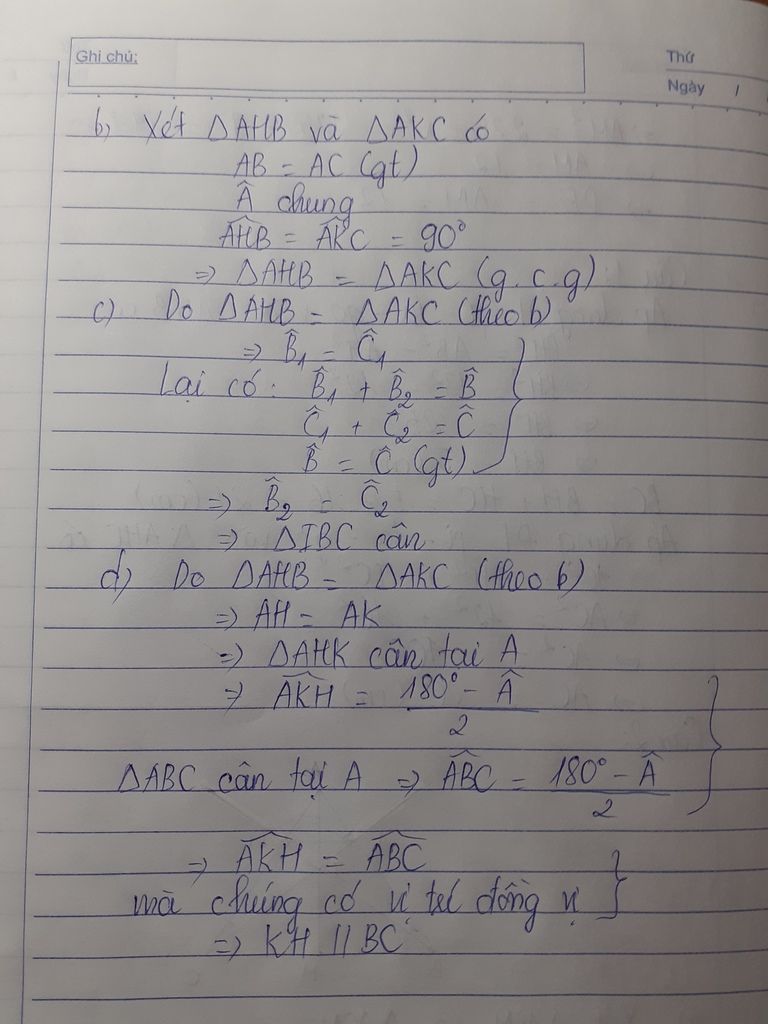 Ghi chú:
Thứ
Ngày /
b) Xét ΔAHB và ΔAKC có
AB = AC (gt)
Â chung
$\widehat{AHB}$ = $\widehat{AKC}$ = 90°
⇒ ΔAHB = ΔAKC (g.c.g)
c) Do ΔAHB = ΔAKC (theo b)
⇒ $\hat{B}_1$ = $\hat{C}_1$
Lại có: $\hat{B}_1$ + $\hat{B}_2$ = $\hat{B}$
$\hat{C}_1$ + $\hat{C}_2$ = $\hat{C}$
$\hat{B}$ = $\hat{C}$ (gt)
⇒ $\hat{B}_2$ = $\hat{C}_2$
⇒ ΔIBC cân
d) Do ΔAHB = ΔAKC (theo b)
⇒ AH = AK
⇒ ΔAHK cân tại A
⇒ $\widehat{AKH}$ = $\frac{180° - \hat{A}}{2}$
ΔABC cân tại A ⇒ $\widehat{ABC}$ = $\frac{180° - \hat{A}}{2}$
⇒ $\widehat{AKH}$ = $\widehat{ABC}$
mà chúng có vị trí đồng vị
⇒ KH // BC